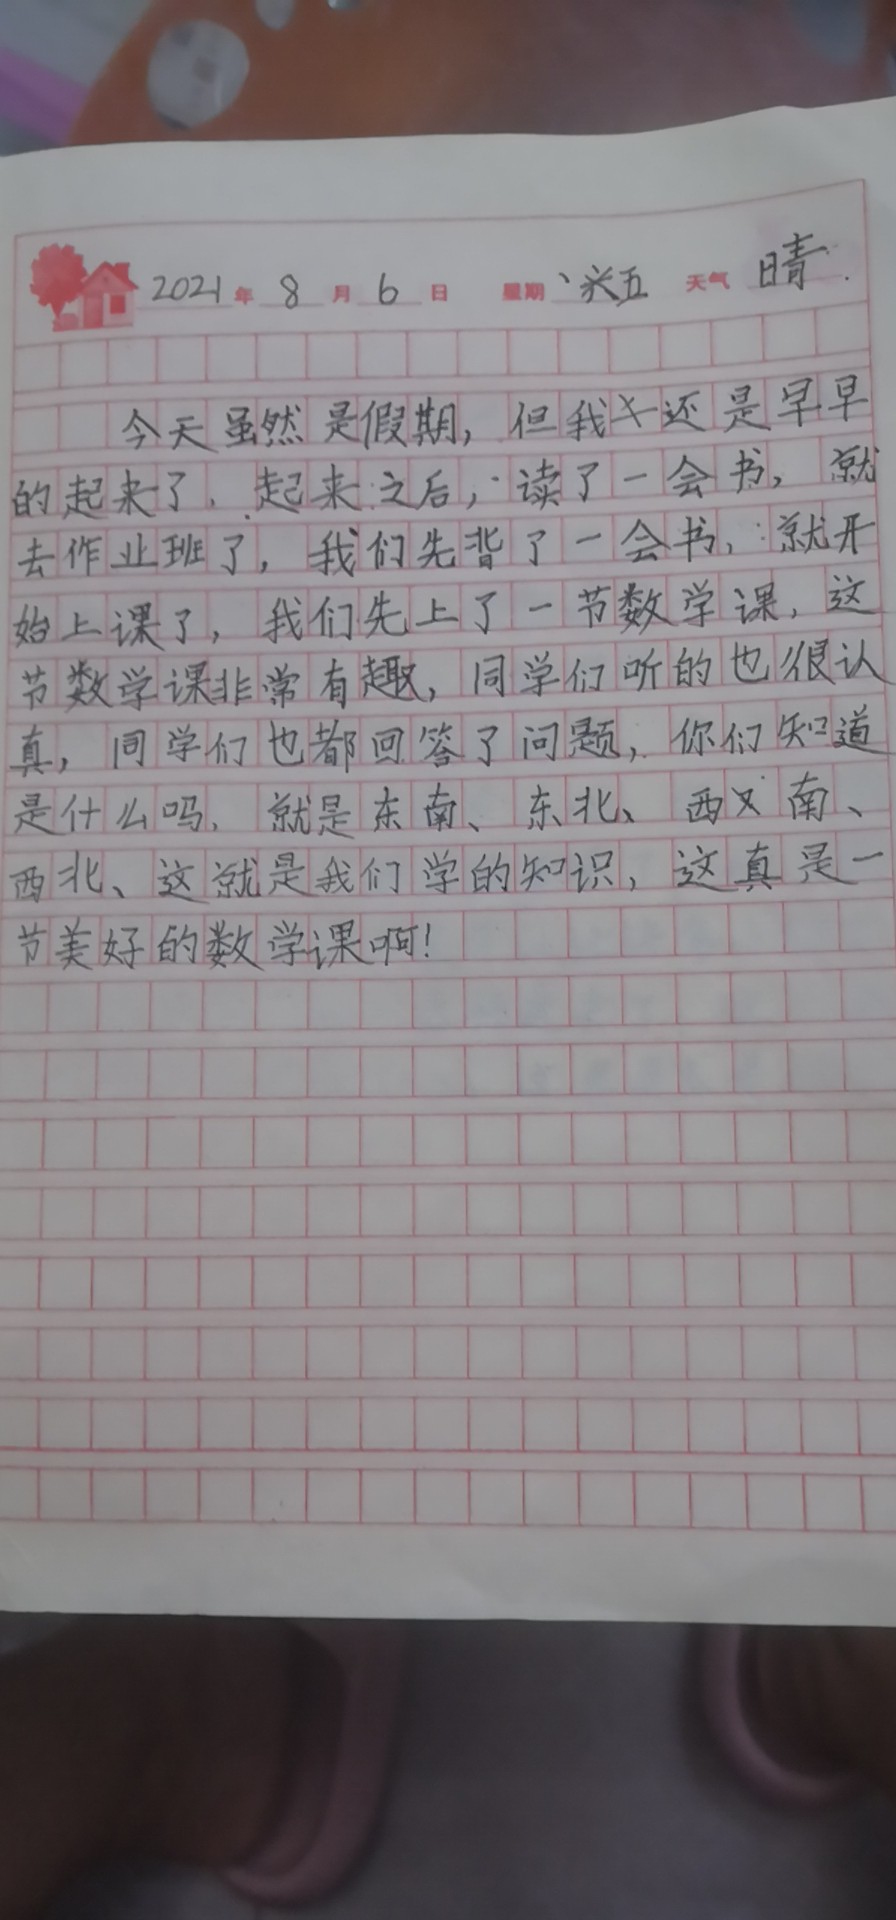 2021年 8月 6日 星期 五 天气 晴.
今天虽然是假期，但我还是早早
的起来了．起来之后，读了一会书，就
去作业班了，我们先背了一会书，就开
始上课了，我们先上了一节数学课，这
节数学课非常有趣，同学们听的也很认
真，同学们也都回答了问题，你们知道
是什么吗．就是东南、东北、西南、
西北、这就是我们学的知识，这真是一
节美好的数学课啊！